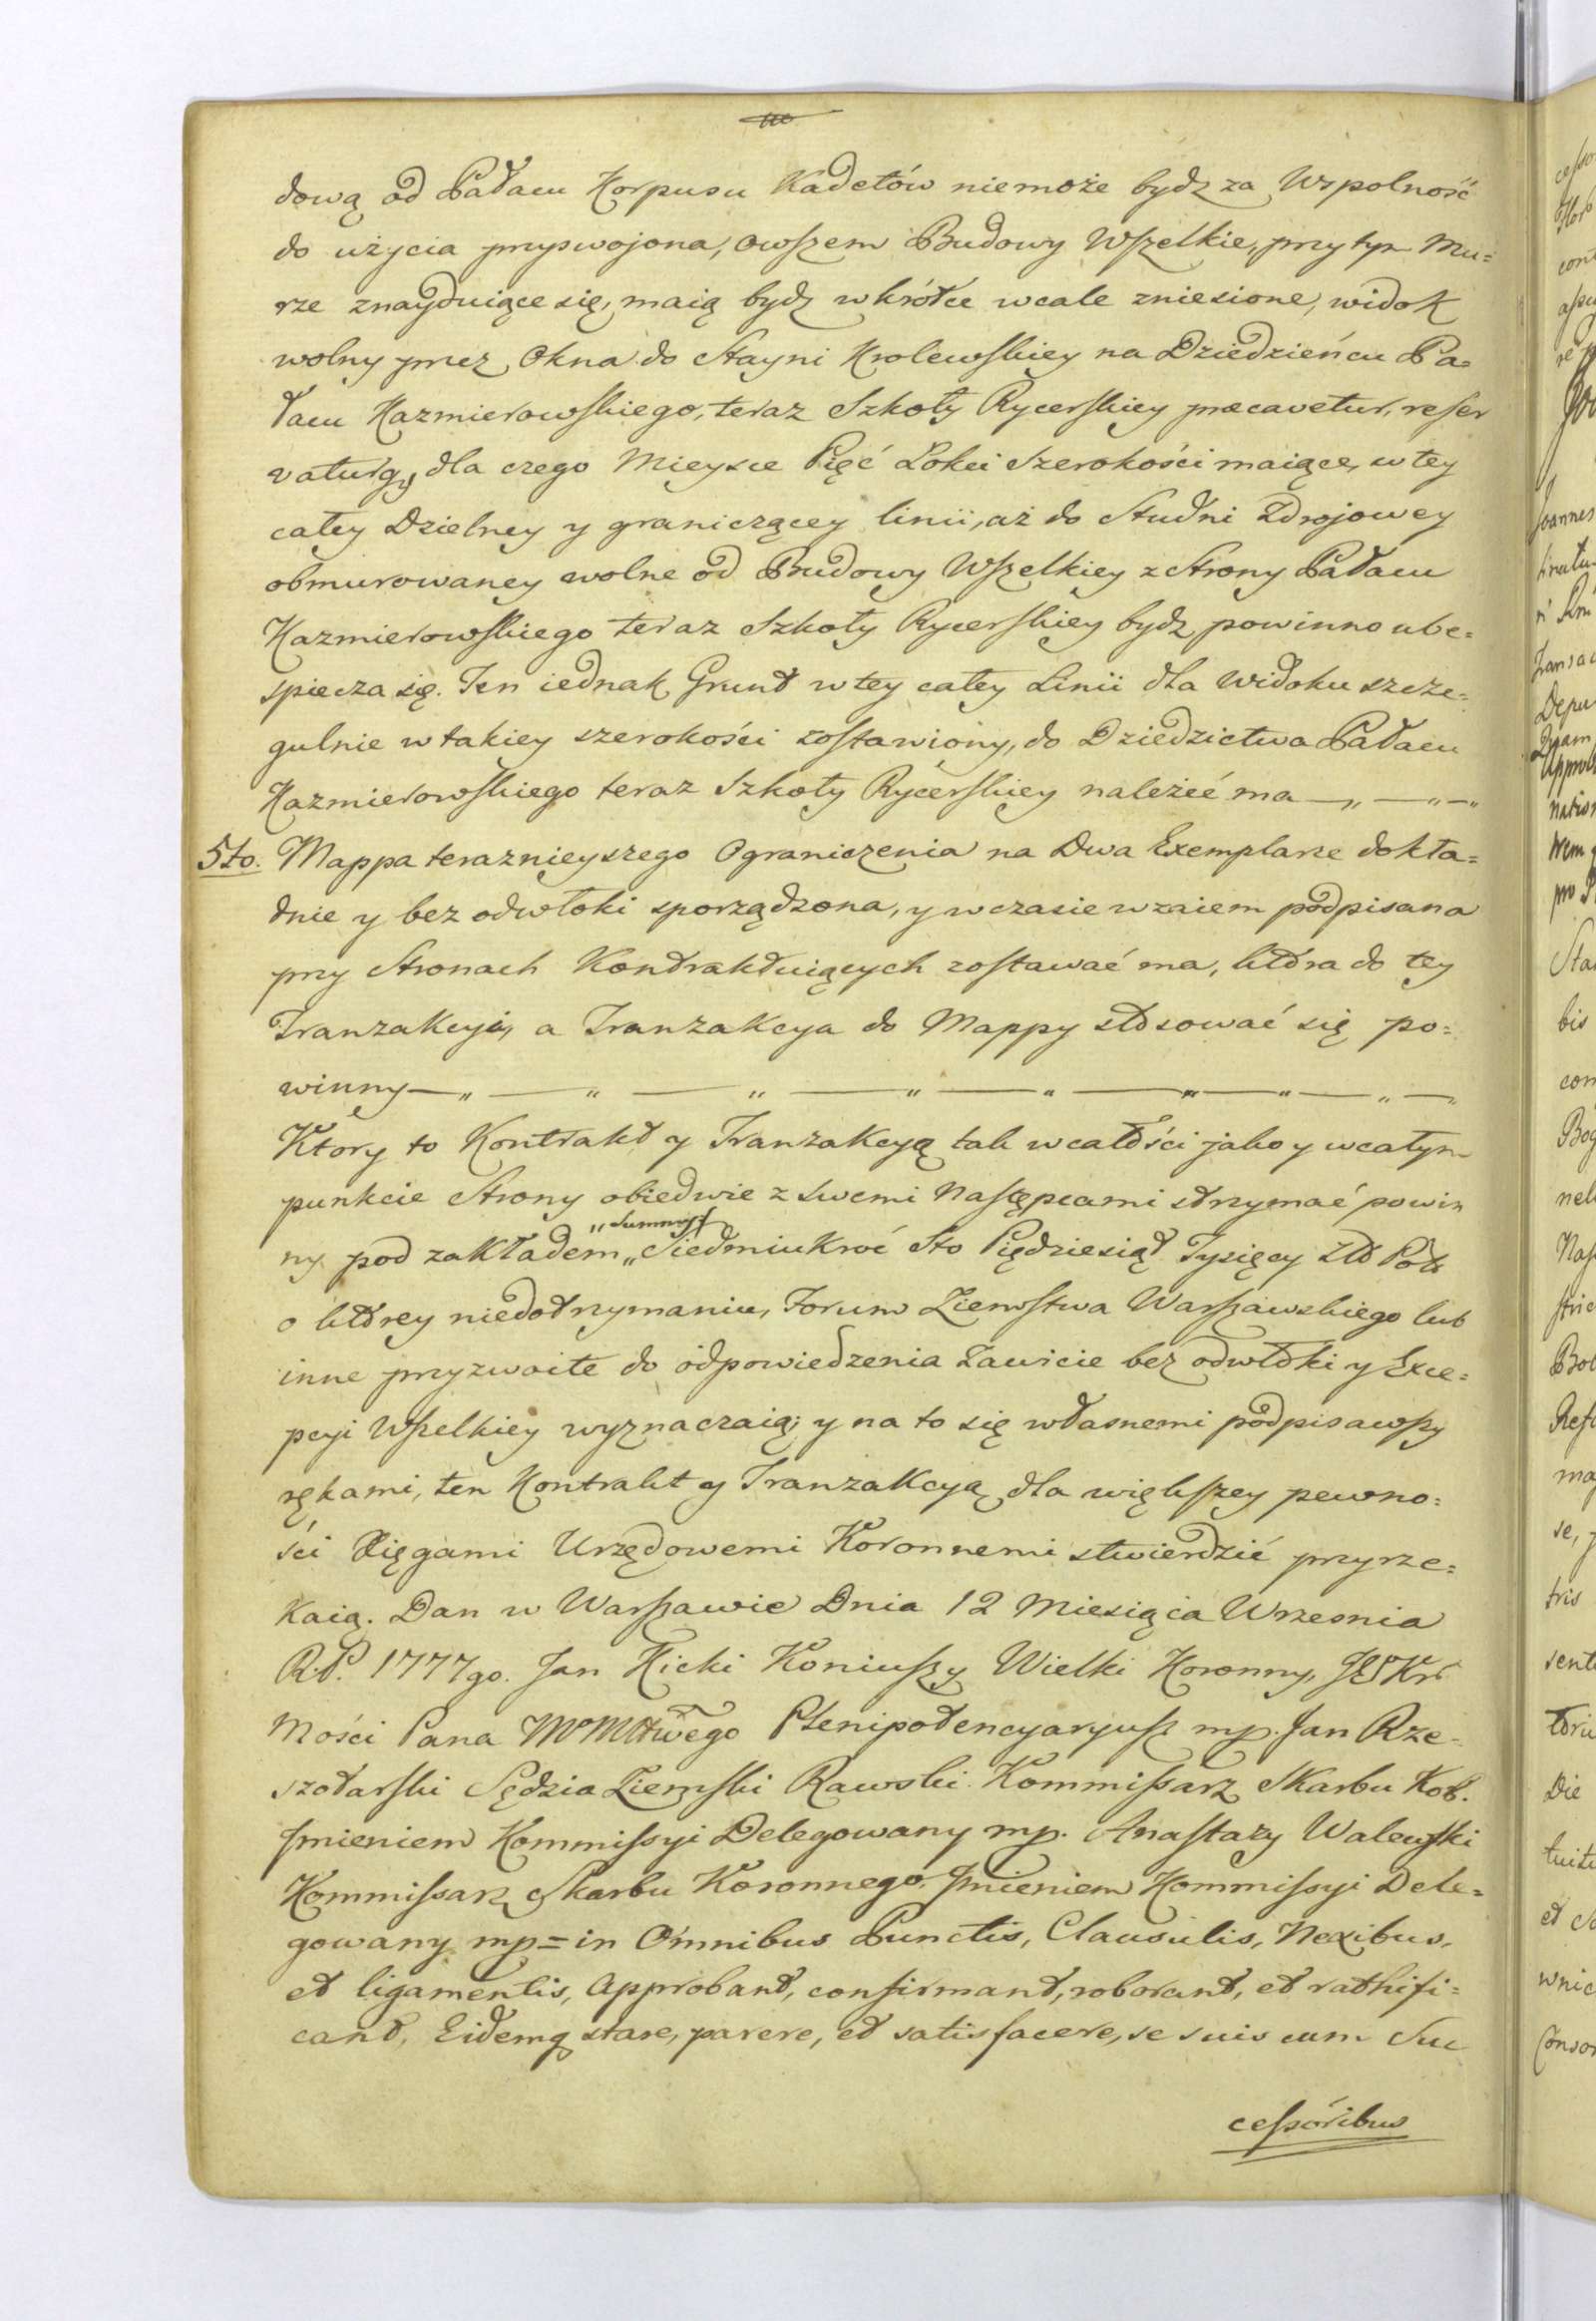 dową od Pałacu Korpusu Kadetów niemoże bydz za Wspolność
do użycia przyswojona, owszem Budowy Wszelkie, przy tym Mu=
rze znayduiące się, maią bydz wkrótce wcale zniesione, widok
wolny przez Okna do Stayni Krolewskiey na Dziedzieńcu Pa=
łacu Kazmierowskiego, teraz Szkoły Rycerskiey præcavetur, reser
vaturq, dla czego Mieysce Pięć Łokci Szerokości maiące, w tey
całey Dzielney y graniczącey linii, aż do Studni Zdrojowey
obmurowaney wolne od Budowy Wszelkiey z Strony Pałacu
Kazmierowskiego teraz Szkoły Rycerskiey bydz powinno ube=
spiecza się. Ten iednak Grunt w tey całey Linii dla Widoku szcze=
gulnie w takiey szerokości zostawiony, do Dziedzictwa Pałacu
Kazmierowskiego teraz Szkoły Rycerskiey należeć ma —„—„—„
5to. Mappa teraznieyszego Ograniczenia na Dwa Exemplarze dokła=
dnie y bez odwłoki sporządzona, y w czasie wzaiem podpisana
przy Stronach Kontraktuiących zostawać ma, która do tey
Tranzakcyi, a Tranzakcya do Mappy stosować się po=
winny —„—„—„—„—„—„—„—„—„
Ktory to Kontrakt y Tranzakcyą tak w całości jako y w całym
punkcie Strony obiedwie z swemi Następcami strzymać powin
ny pod zakładem „Siedmiukroć Sto Piędziesiąt Tysięcy Złt Pol:
„Summy
o którey niedotrzymaniu, Forum Ziemstwa Warszawskiego lub
inne przyzwoite do odpowiedzenia Zawicie bez odwłoki y Exce=
pcyi Wszelkiey wyznaczaią; y na to się własnemi podpisawszy
rękami, ten Kontrakt y Tranzakcyą dla większey pewno=
ści Xięgami Urzędowemi Koronnemi stwierdzić przyrze=
kaią. Dan w Warszawie Dnia 12 Miesiąca Wrzesnia
R.P. 1777go. Jan Kicki Koniuszy Wielki Koronny,
Mości Pana Plenipotencyaryusz mp. Jan Rze=
szotarski Sędzia Ziemski Rawski Kommissarz Skarbu Kor.
Jmieniem Kommissyi Delegowany mp. Anastazy Walewski
Kommissarz Skarbu Koronnego, Jmieniem Kommissyi Dele=
gowany mp= in Omnibus Punctis, Clausulis, Nexibus,
et ligamentis, approbant, confirmant, roborant, et rathifi=
cant, Eidemq stare, parere, et satisfacere, se suis cum Suc
cessoribus